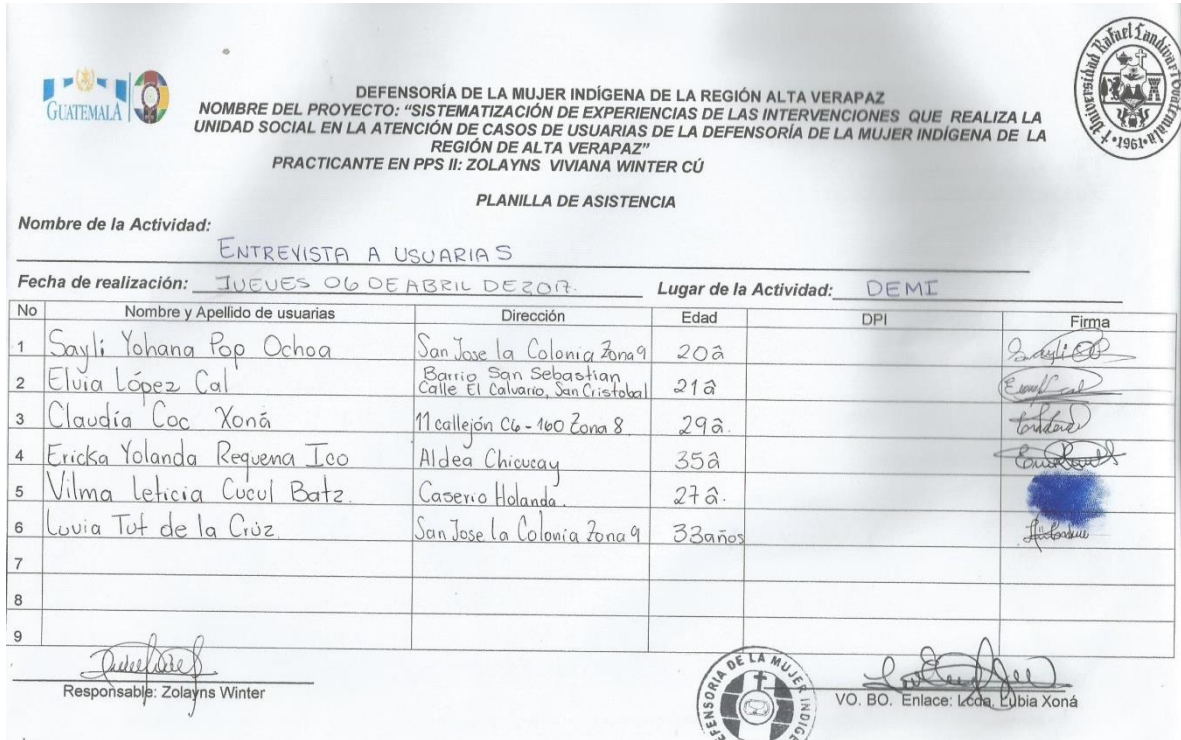 GUATEMALA
Universidad Rafael Landívar
1961
DEFENSORÍA DE LA MUJER INDÍGENA DE LA REGIÓN ALTA VERAPAZ
NOMBRE DEL PROYECTO: "SISTEMATIZACIÓN DE EXPERIENCIAS DE LAS INTERVENCIONES QUE REALIZA LA
UNIDAD SOCIAL EN LA ATENCIÓN DE CASOS DE USUARIAS DE LA DEFENSORÍA DE LA MUJER INDÍGENA DE LA
REGIÓN DE ALTA VERAPAZ"
PRACTICANTE EN PPS II: ZOLAYNS VIVIANA WINTER CÚ
PLANILLA DE ASISTENCIA
Nombre de la Actividad:
ENTREVISTA A USUARIAS
Fecha de realización: JUEVES 06 DE ABRIL DE 2017. Lugar de la Actividad: DEMI
No Nombre y Apellido de usuarias Dirección Edad DPI Firma
1 Sayli Yohana Pop Ochoa San Jose la Colonia Zona 9 20 a
2 Elvia López Cal Barrio San Sebastian Calle El Calvario, San Cristobal 21 a
3 Claudia Coc Xoná 11 callejón C6-160 Zona 8 29 a.
4 Ericka Yolanda Requena Ico Aldea Chicucay 35 a
5 Vilma Leticia Cucul Batz. Caserio Holanda. 27 a.
6 Luvia Tut de la Crúz San Jose la Colonia Zona 9 33 años
7
8
9
Responsable: Zolayns Winter
DEFENSORIA DE LA MUJER INDIGE
VO. BO. Enlace: Lcda. Lubia Xoná